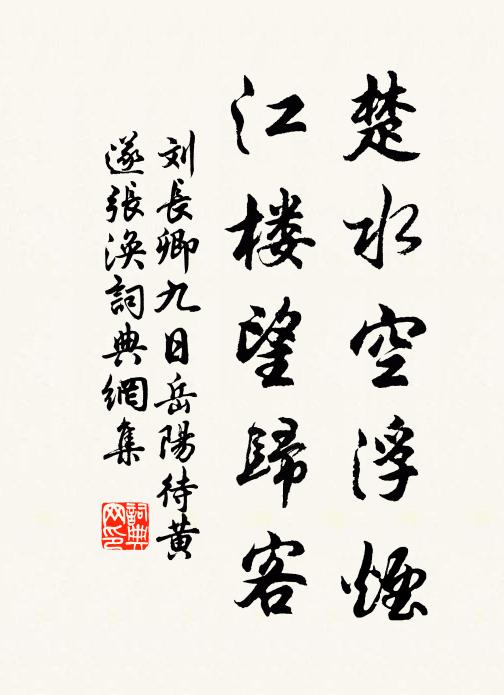 楚水空浮煙
江楼望歸客
刘長卿九日岳陽待黄
遂張渙詞典網集
詞典網印